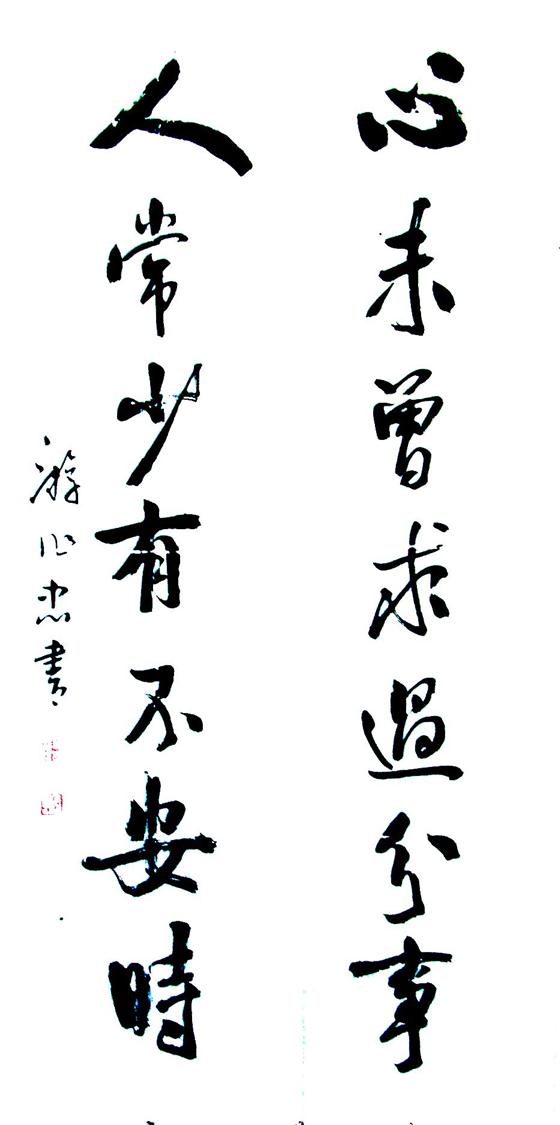 心未曾求過分事
人常少有不安時
游心忠書